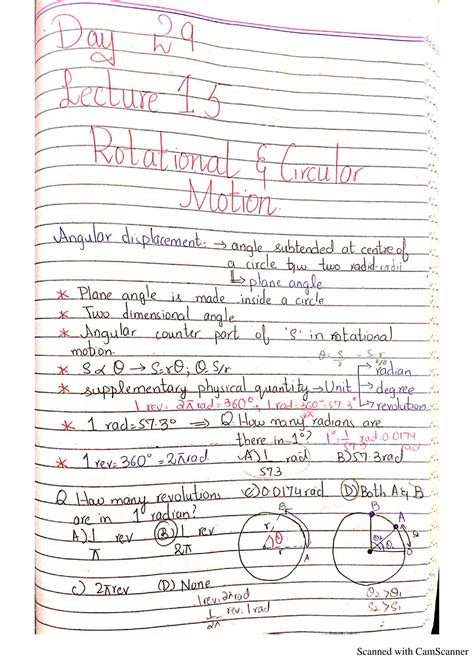 Day 29
Lecture 15
Rotational & Circular
Motion.
Angular displacement: → angle subtended at centre of
a circle b/w two radid-radii
↳ plane angle
* Plane angle is made inside a circle
* Two dimensional angle
* Angular counter part of 'S' in rotational
motion.
* S∝θ → S=rθ; θ=S/r
radian
* supplementary physical quantity → Unit → degree
1 rev = 2πrad = 360°; 1 rad = 360° = 57.3°
revolution
* 1 rad = 57.3° ⇒ Q. How many radians are
there in 1°?
0.0174
* 1 rev = 360° = 2πrad.
A) 1 rad
573
B) 57.3rad
Q. How many revolutions
C) 0.0174 rad
D) Both A & B
are in 1 radian?
A) 1 rev
π
B) 1 rev
2π
c) 2πrev
D) None
1 rev = 2πrad
1 rev = 1 rad
2π
B
r
θ
r
A
B
A
θ₂ > θ₁
S₂ > S₁
Scanned with CamScanner